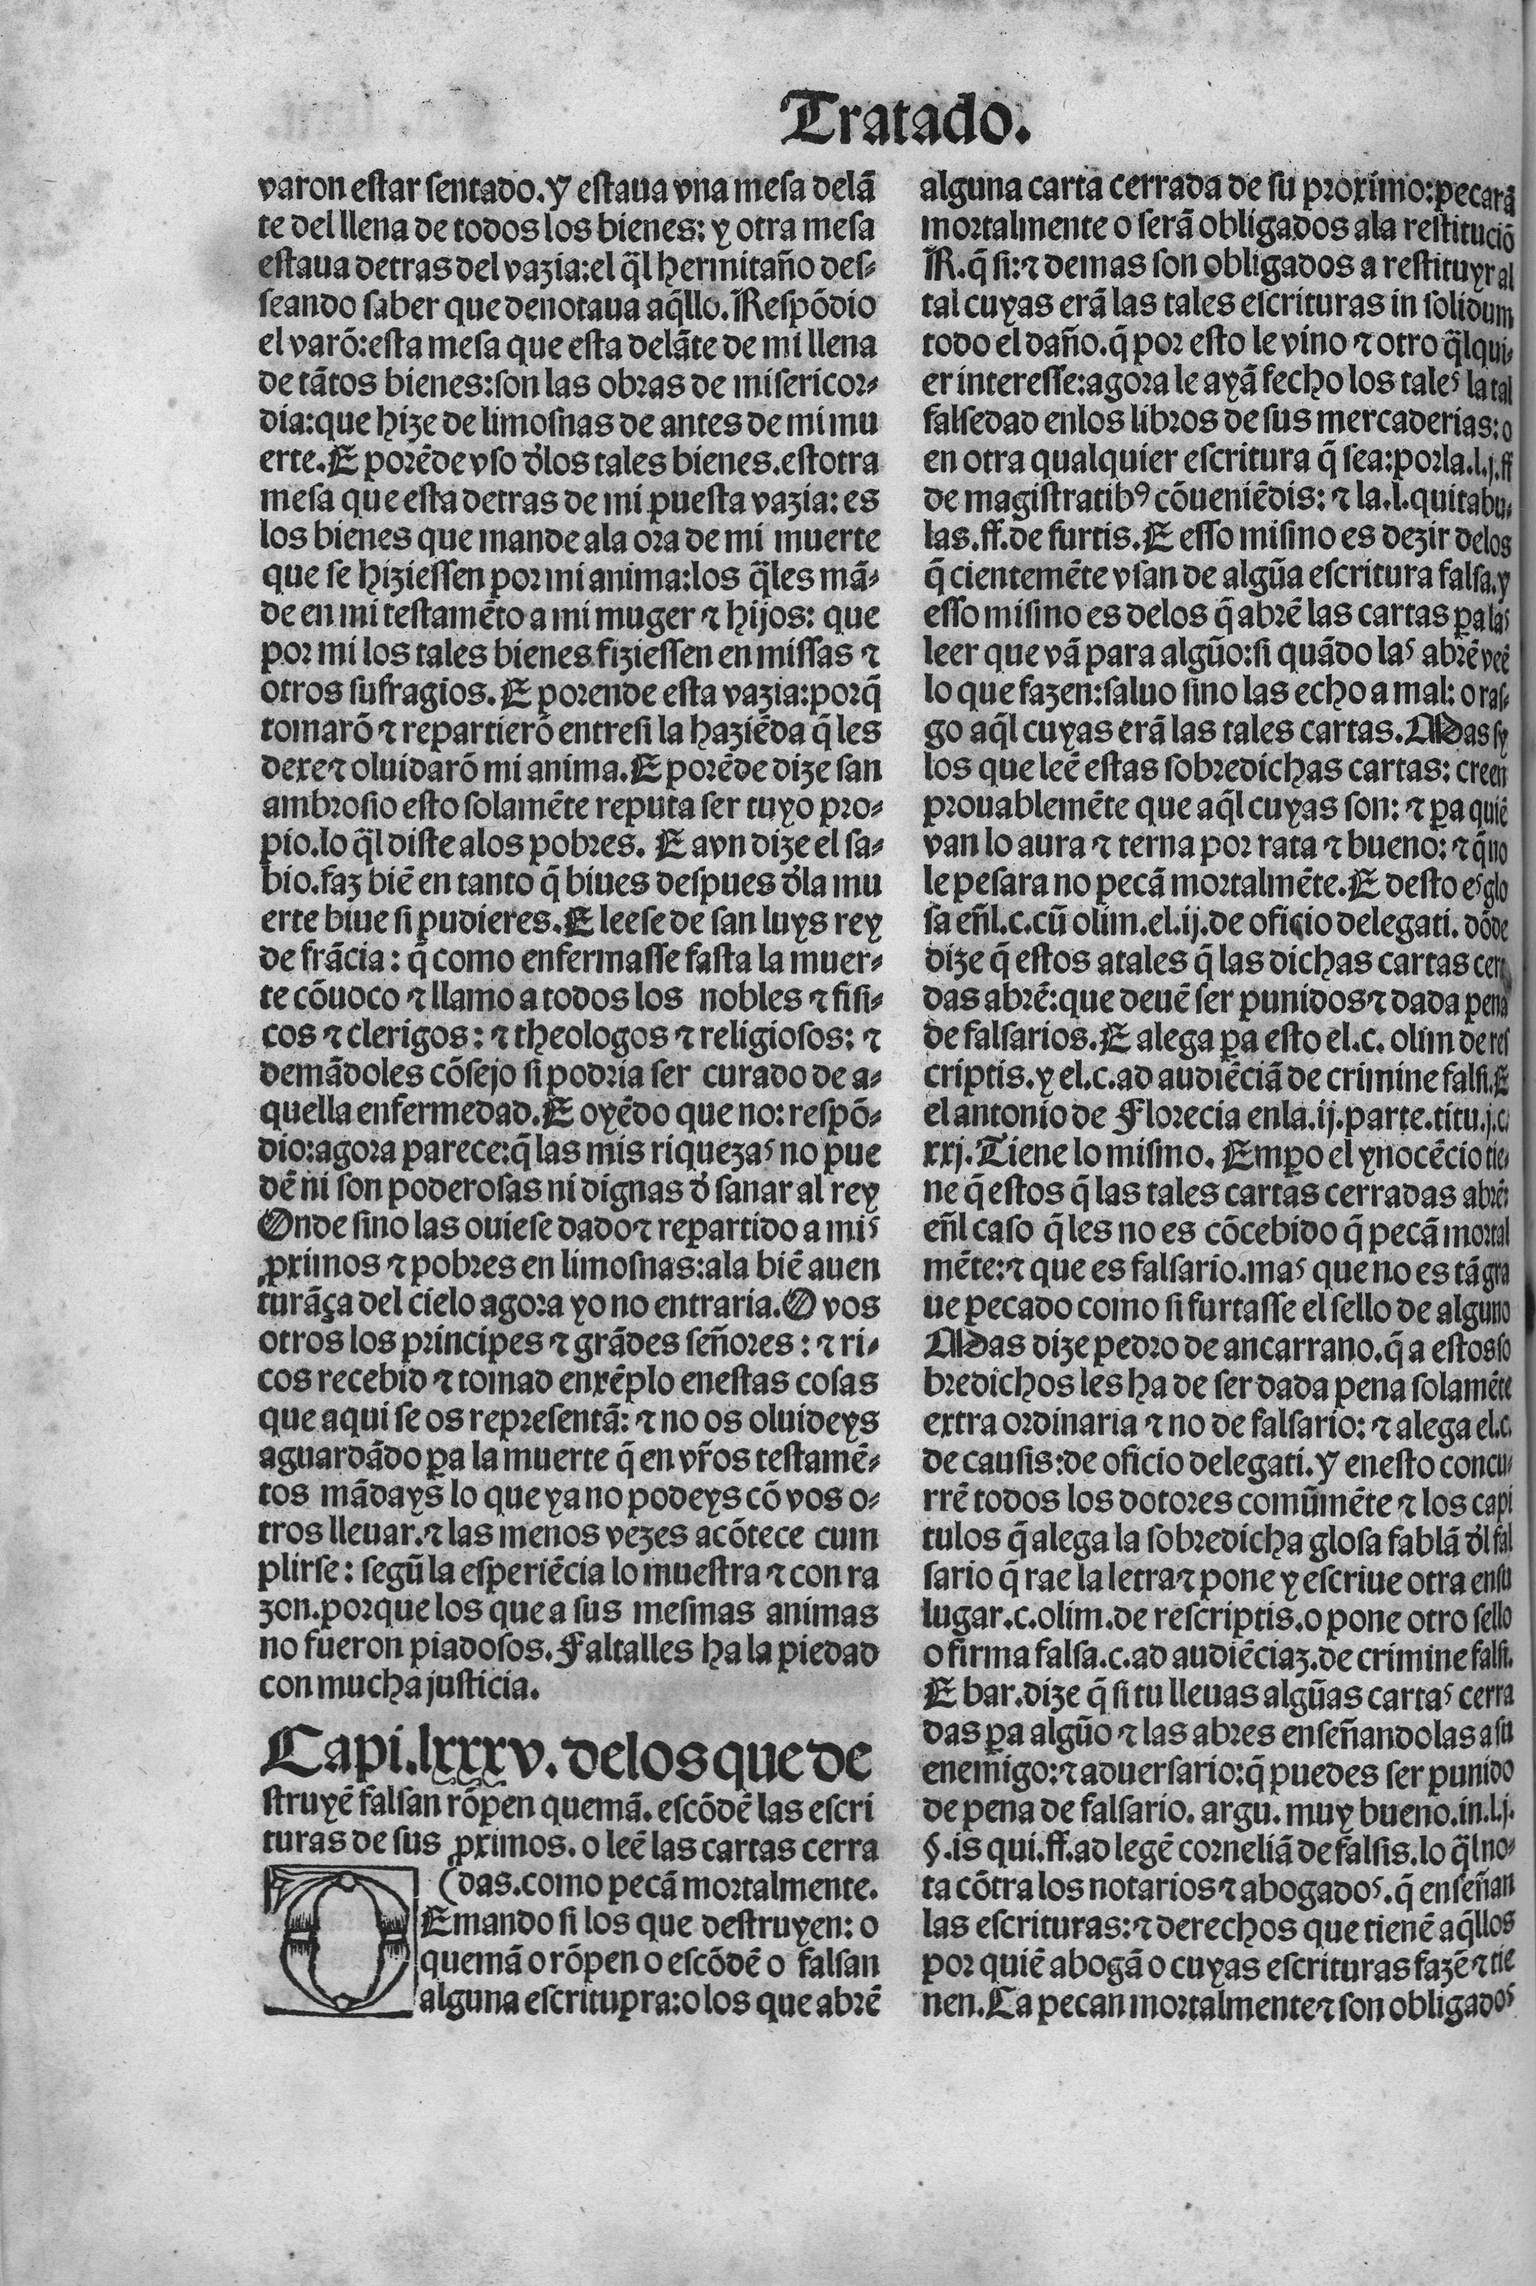 Tratado.
varon estar sentado. y estaua vna mesa delã
te del llena de todos los bienes: y otra mesa
estaua detras del vazia: el q̃l hermitaño des-
seando saber que denotaua aq̃llo. Respõdio
el varõ: esta mesa que esta delãte de mi llena
de tãtos bienes: son las obras de misericor-
dia: que hize de limosnas de antes de mi mu
erte. E porẽde vso đlos tales bienes. estotra
mesa que esta detras de mi puesta vazia: es
los bienes que mande ala ora de mi muerte
que se hiziessen por mi anima: los q̃les mã-
de en mi testamẽto a mi muger ⁊ hijos: que
por mi los tales bienes fiziessen en missas ⁊
otros sufragios. E porende esta vazia: porq̃
tomarõ ⁊ repartierõ entresi la haziẽda q̃ les
dexe ⁊ oluidarõ mi anima. E porẽde dize san
ambrosio esto solamẽte reputa ser tuyo pro-
pio. lo q̃l diste alos pobres. E avn dize el sa-
bio. faz biẽ en tanto q̃ biues despues đla mu
erte biue si pudieres. E leese de san luys rey
de frãcia: q̃ como enfermasse fasta la muer-
te cõuoco ⁊ llamo a todos los nobles ⁊ fisi-
cos ⁊ clerigos: ⁊ theologos ⁊ religiosos: ⁊
demãdoles cõsejo si podria ser curado de a-
quella enfermedad. E oyẽdo que no: respõ-
dio: agora parece: q̃ las mis riquezas no pue
dẽ ni son poderosas ni dignas đ sanar al rey
Onde sino las ouiese dado ⁊ repartido a mis
ꝓximos ⁊ pobres en limosnas: ala biẽ auen
turãça del cielo agora yo no entraria. O vos
otros los principes ⁊ grãdes señores: ⁊ ri-
cos recebid ⁊ tomad enxẽplo enestas cosas
que aqui se os representã: ⁊ no os oluideys
aguardãdo ꝑa la muerte q̃ en vr̃os testamẽ-
tos mãdays lo que ya no podeys cõ vos o-
tros lleuar. ⁊ las menos vezes acõtece cum
plirse: segũ la esperiẽcia lo muestra ⁊ con ra
zon. porque los que a sus mesmas animas
no fueron piadosos. Faltalles ha la piedad
con mucha justicia.
Capi. lxxxv. delos que de
struyẽ falsan rõpen quemã. escõdẽ las escri
turas de sus ꝓximos. o leẽ las cartas cerra
(das. como pecã mortalmente.
DEmando si los que destruyen: o
quemã o rõpen o escõdẽ o falsan
alguna escritupra: o los que abrẽ
alguna carta cerrada de su proximo: pecarã
mortalmente o serã obligados ala restituciõ
R. q̃ si: ⁊ demas son obligados a restituyr al
tal cuyas erã las tales escrituras in solidum
todo el daño. q̃ por esto le vino ⁊ otro q̃lqui-
er interesse: agora le ayã fecho los tales la tal
falsedad enlos libros de sus mercaderias: o
en otra qualquier escritura q̃ sea: porla. l. j. ff
de magistratibꝰ cõueniẽdis: ⁊ la. l. qui tabu-
las. ff. de furtis. E esso mismo es dezir delos
q̃ cientemẽte vsan de algũa escritura falsa. y
esso mismo es delos q̃ abrẽ las cartas ꝑa las
leer que vã para algũo: si quãdo las abrẽ veẽ
lo que fazen: saluo sino las echo a mal: o ras-
go aq̃l cuyas erã las tales cartas. Mas sy
los que leẽ estas sobredichas cartas: creen
prouablemẽte que aq̃l cuyas son: ⁊ ꝑa quiẽ
van lo aura ⁊ terna por rata ⁊ bueno: ⁊ q̃ no
le pesara no pecã mortalmẽte. E desto es glo
sa eñl. c. cũ olim. el. ij. de oficio delegati. dõde
dize q̃ estos atales q̃ las dichas cartas cerra
das abrẽ: que deuẽ ser punidos ⁊ dada pena
de falsarios. E alega ꝑa esto el. c. olim de res
criptis. y el. c. ad audiẽciã de crimine falsi. E
el antonio de Florecia enla. ij. parte. titu. j. c.
xxj. Tiene lo mismo. Empo el ynocẽcio tie-
ne q̃ estos q̃ las tales cartas cerradas abrẽ:
eñl caso q̃ les no es cõcebido q̃ pecã mortal
mẽte: ⁊ que es falsario. mas que no es tã gra
ue pecado como si furtasse el sello de alguno
Mas dize pedro de ancarrano. q̃ a estos so
bredichos les ha de ser dada pena solamẽte
extra ordinaria ⁊ no de falsario: ⁊ alega el. c.
de causis: de oficio delegati. Y enesto concu-
rrẽ todos los dotores comũmẽte ⁊ los capi
tulos q̃ alega la sobredicha glosa fablã đl fal
sario q̃ rae la letra ⁊ pone y escriue otra en su
lugar. c. olim. de rescriptis. o pone otro sello
o firma falsa. c. ad audiẽciaz. de crimine falsi.
E bar. dize q̃ si tu lleuas algũas cartas cerra
das ꝑa algũo ⁊ las abres enseñandolas a su
enemigo: ⁊ aduersario: q̃ puedes ser punido
de pena de falsario. argu. muy bueno. in. l. j.
§. is qui. ff. ad legẽ corneliã de falsis. lo q̃l no-
ta cõtra los notarios ⁊ abogados. q̃ enseñan
las escrituras: ⁊ derechos que tienẽ aq̃llos
por quiẽ abogã o cuyas escrituras fazẽ ⁊ tie
nen. Ca pecan mortalmente ⁊ son obligados